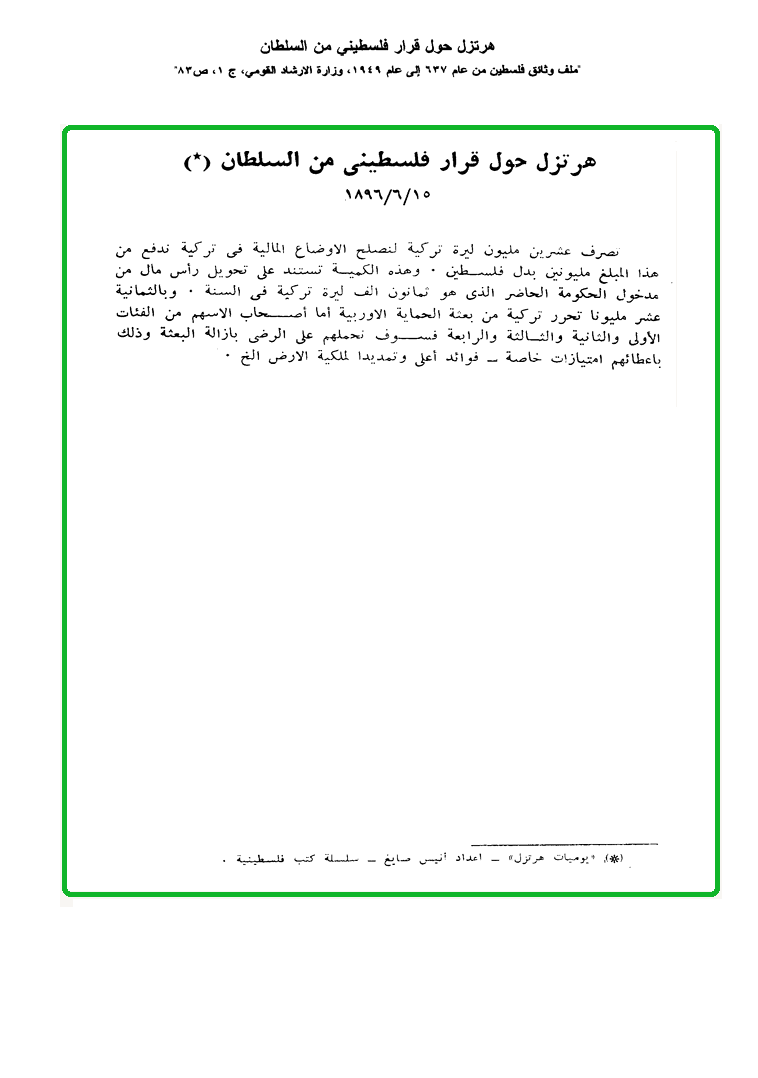 هرتزل حول قرار فلسطيني من السلطان
"ملف وثائق فلسطين من عام ٦٣٧ إلى عام ١٩٤٩، وزارة الارشاد القومي، ج ١، ص٨٣"
هرتزل حول قرار فلسطينى من السلطان (*)
١٨٩٦/٦/١٥
نصرف عشرين مليون ليرة تركية لنصلح الاوضاع المالية فى تركية ندفع من
هذا المبلغ مليونين بدل فلسطين . وهذه الكمية تستند على تحويل رأس مال من
مدخول الحكومة الحاضر الذى هو ثمانون الف ليرة تركية فى السنة . وبالثمانية
عشر مليونا تحرر تركية من بعثة الحماية الاوربية أما أصحاب الاسهم من الفئات
الأولى والثانية والثالثة والرابعة فسوف نحملهم على الرضى بازالة البعثة وذلك
باعطائهم امتيازات خاصة ــ فوائد أعلى وتمديدا لملكية الارض الخ .
(*) «يوميات هرتزل» ــ اعداد أنيس صايغ ــ سلسلة كتب فلسطينية .